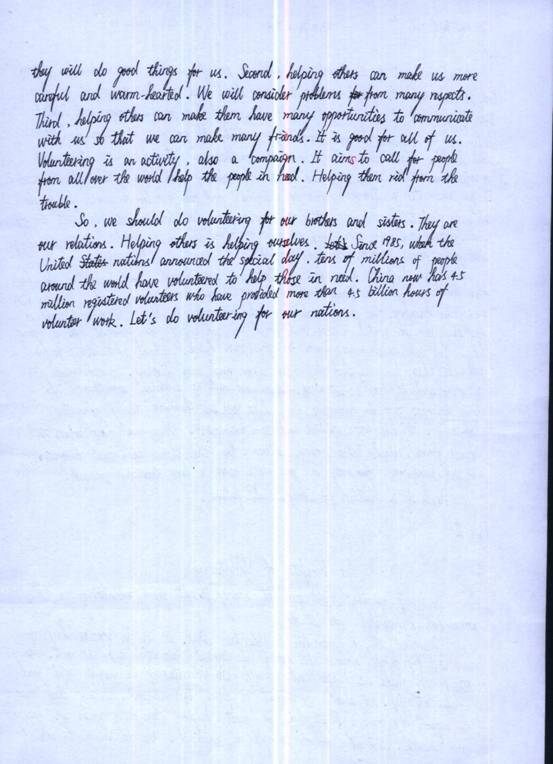 they will do good things for us. Second, helping others can make us more
careful and warm-hearted. We will consider problems from many respects.
Third, helping others can make them have many opportunities to communicate
with us so that we can make many friends. It is good for all of us.
Volunteering is an activity, also a campaign. It aims to call for people
from all over the world help the people in need. Helping them rid from the
trouble.
So, we should do volunteering for our brothers and sisters. They are
our relations. Helping others is helping ourselves. Since 1985, when the
United nations announced the special day, tens of millions of people
around the world have volunteered to help those in need. China now has 4.5
million registered volunteers who have provided more than 4.5 billion hours of
volunteer work. Let's do volunteering for our nations.